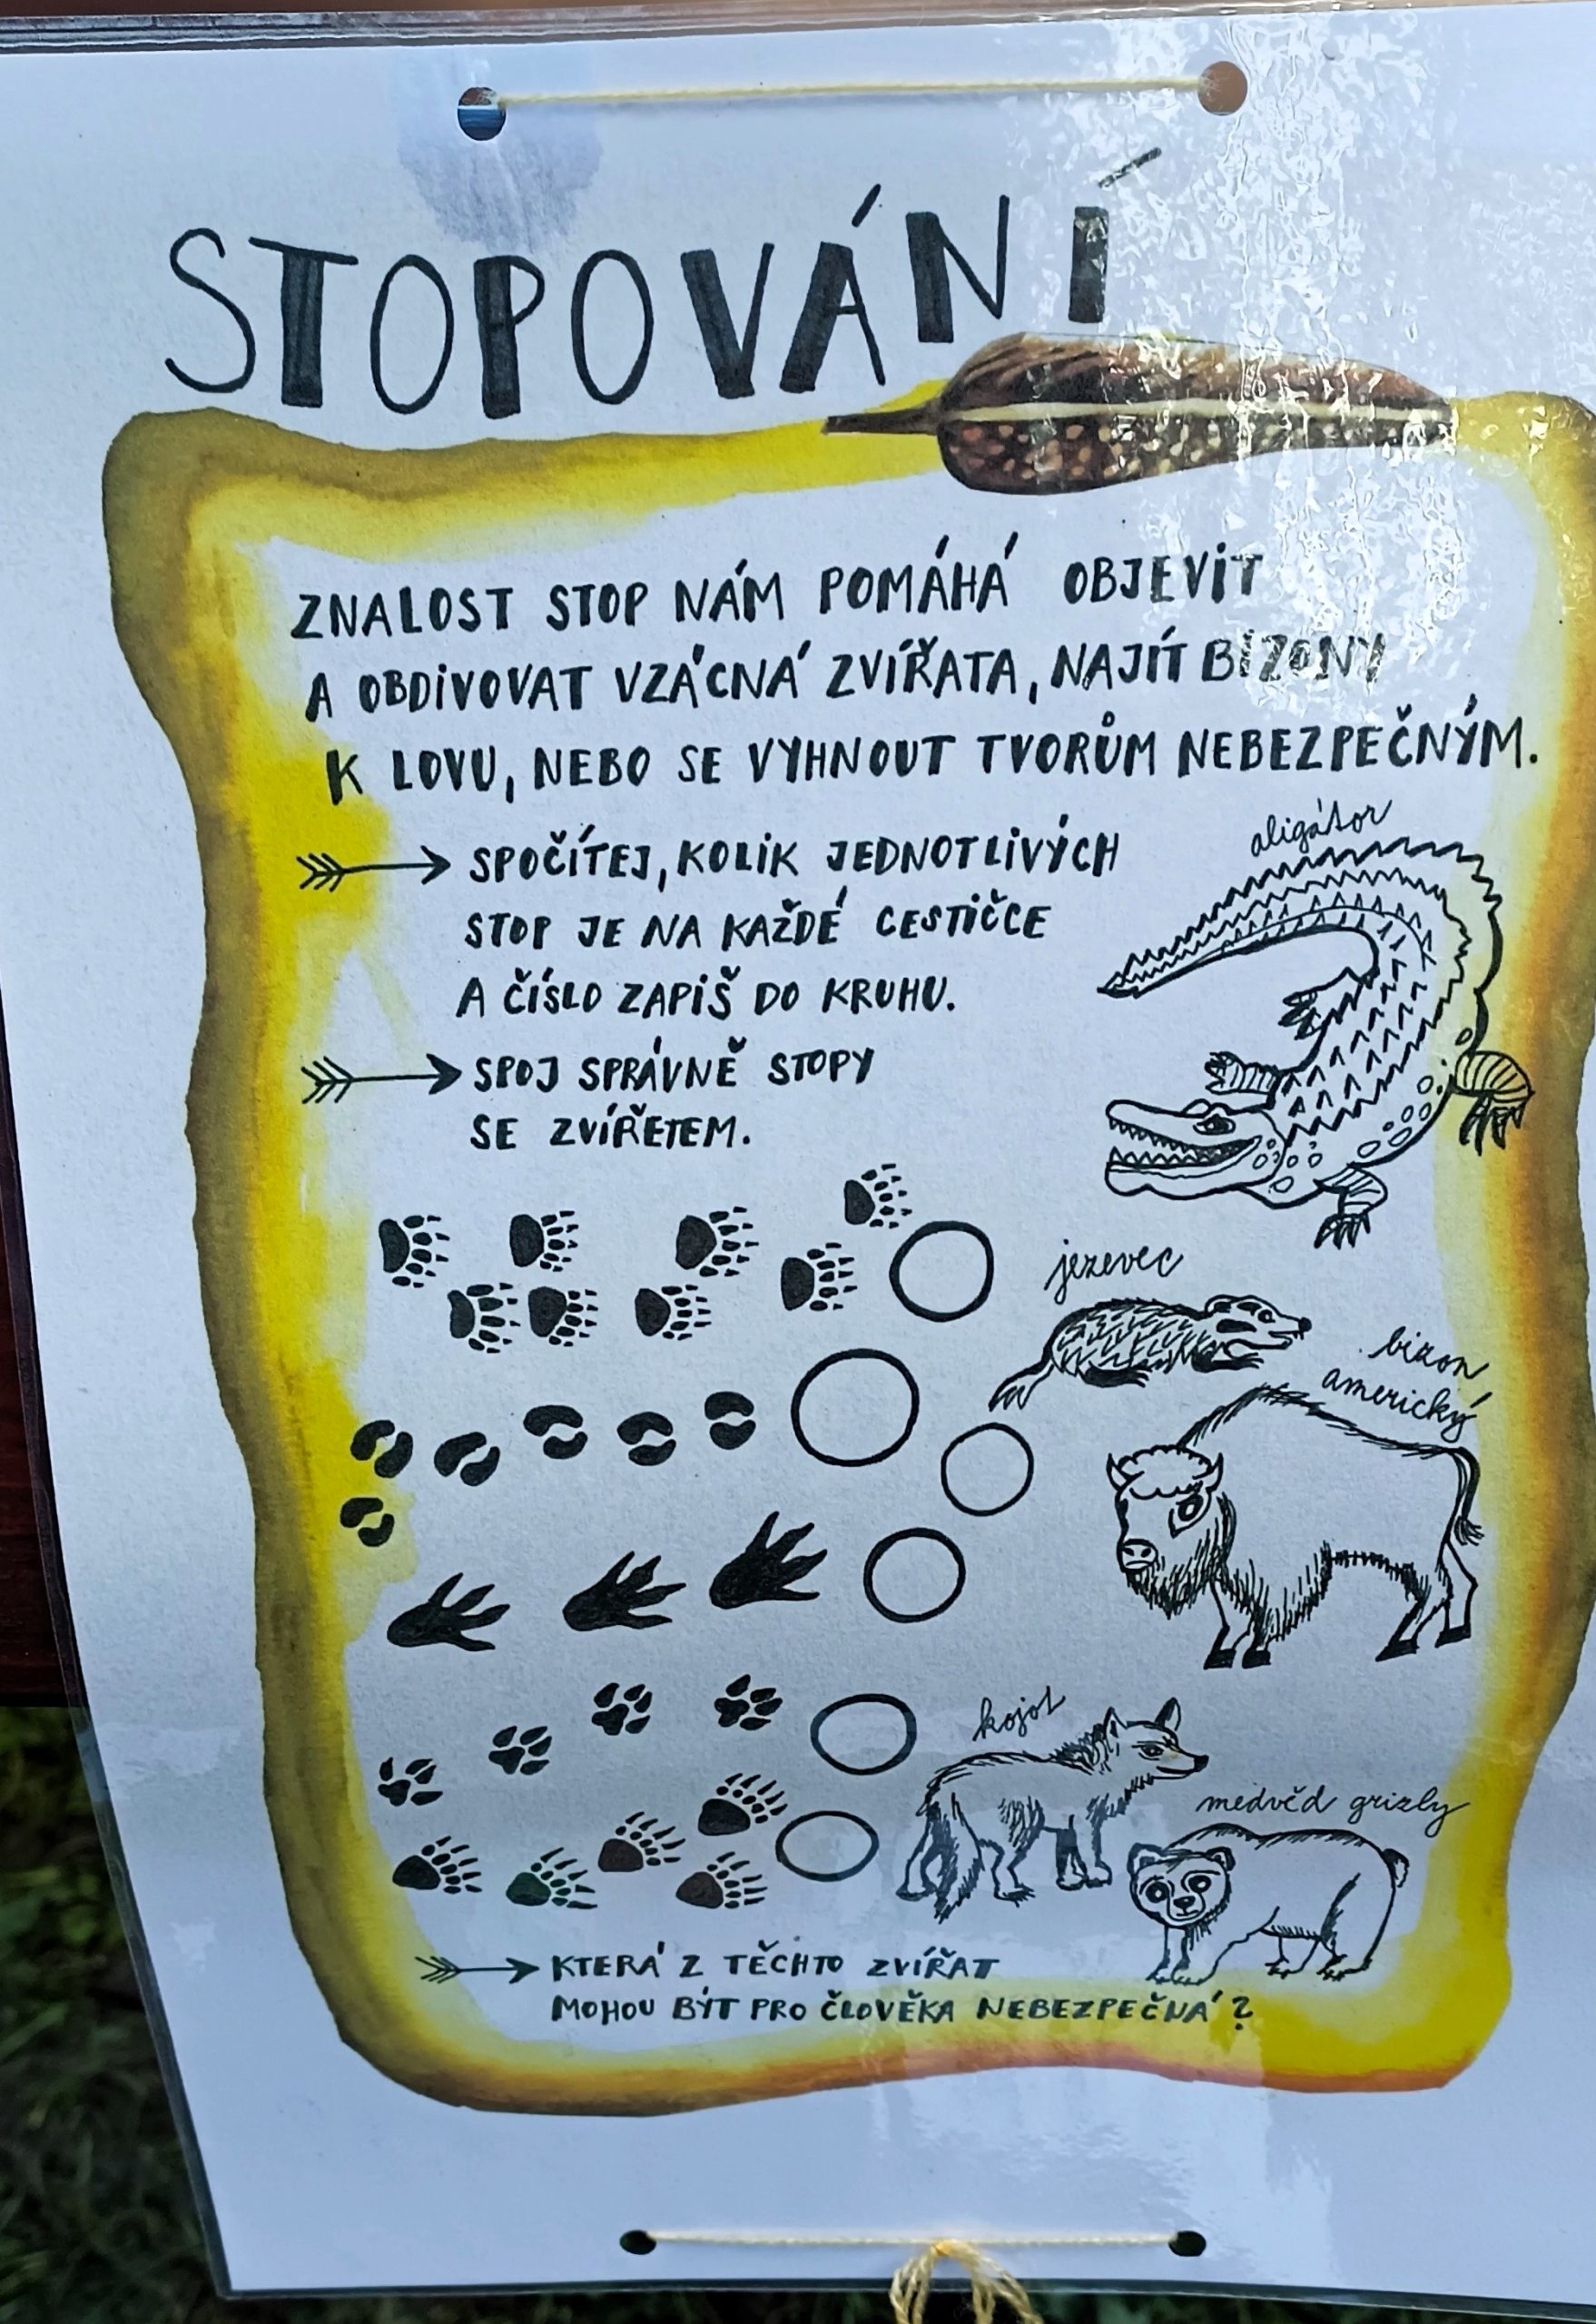 STOPOVÁNÍ
ZNALOST STOP NÁM POMÁHÁ OBJEVIT
A OBDIVOVAT VZÁCNÁ ZVÍŘATA, NAJÍT BIZONY
K LOVU, NEBO SE VYHNOUT TVORŮM NEBEZPEČNÝM.
SPOČÍTEJ, KOLIK JEDNOTLIVÝCH
STOP JE NA KAŽDÉ CESTIČCE
A ČÍSLO ZAPIŠ DO KRUHU.
SPOJ SPRÁVNĚ STOPY
SE ZVÍŘETEM.
aligátor
jezevec
bizon
americký
kojot
medvěd grizly
KTERÁ Z TĚCHTO ZVÍŘAT
MOHOU BÝT PRO ČLOVĚKA NEBEZPEČNÁ?